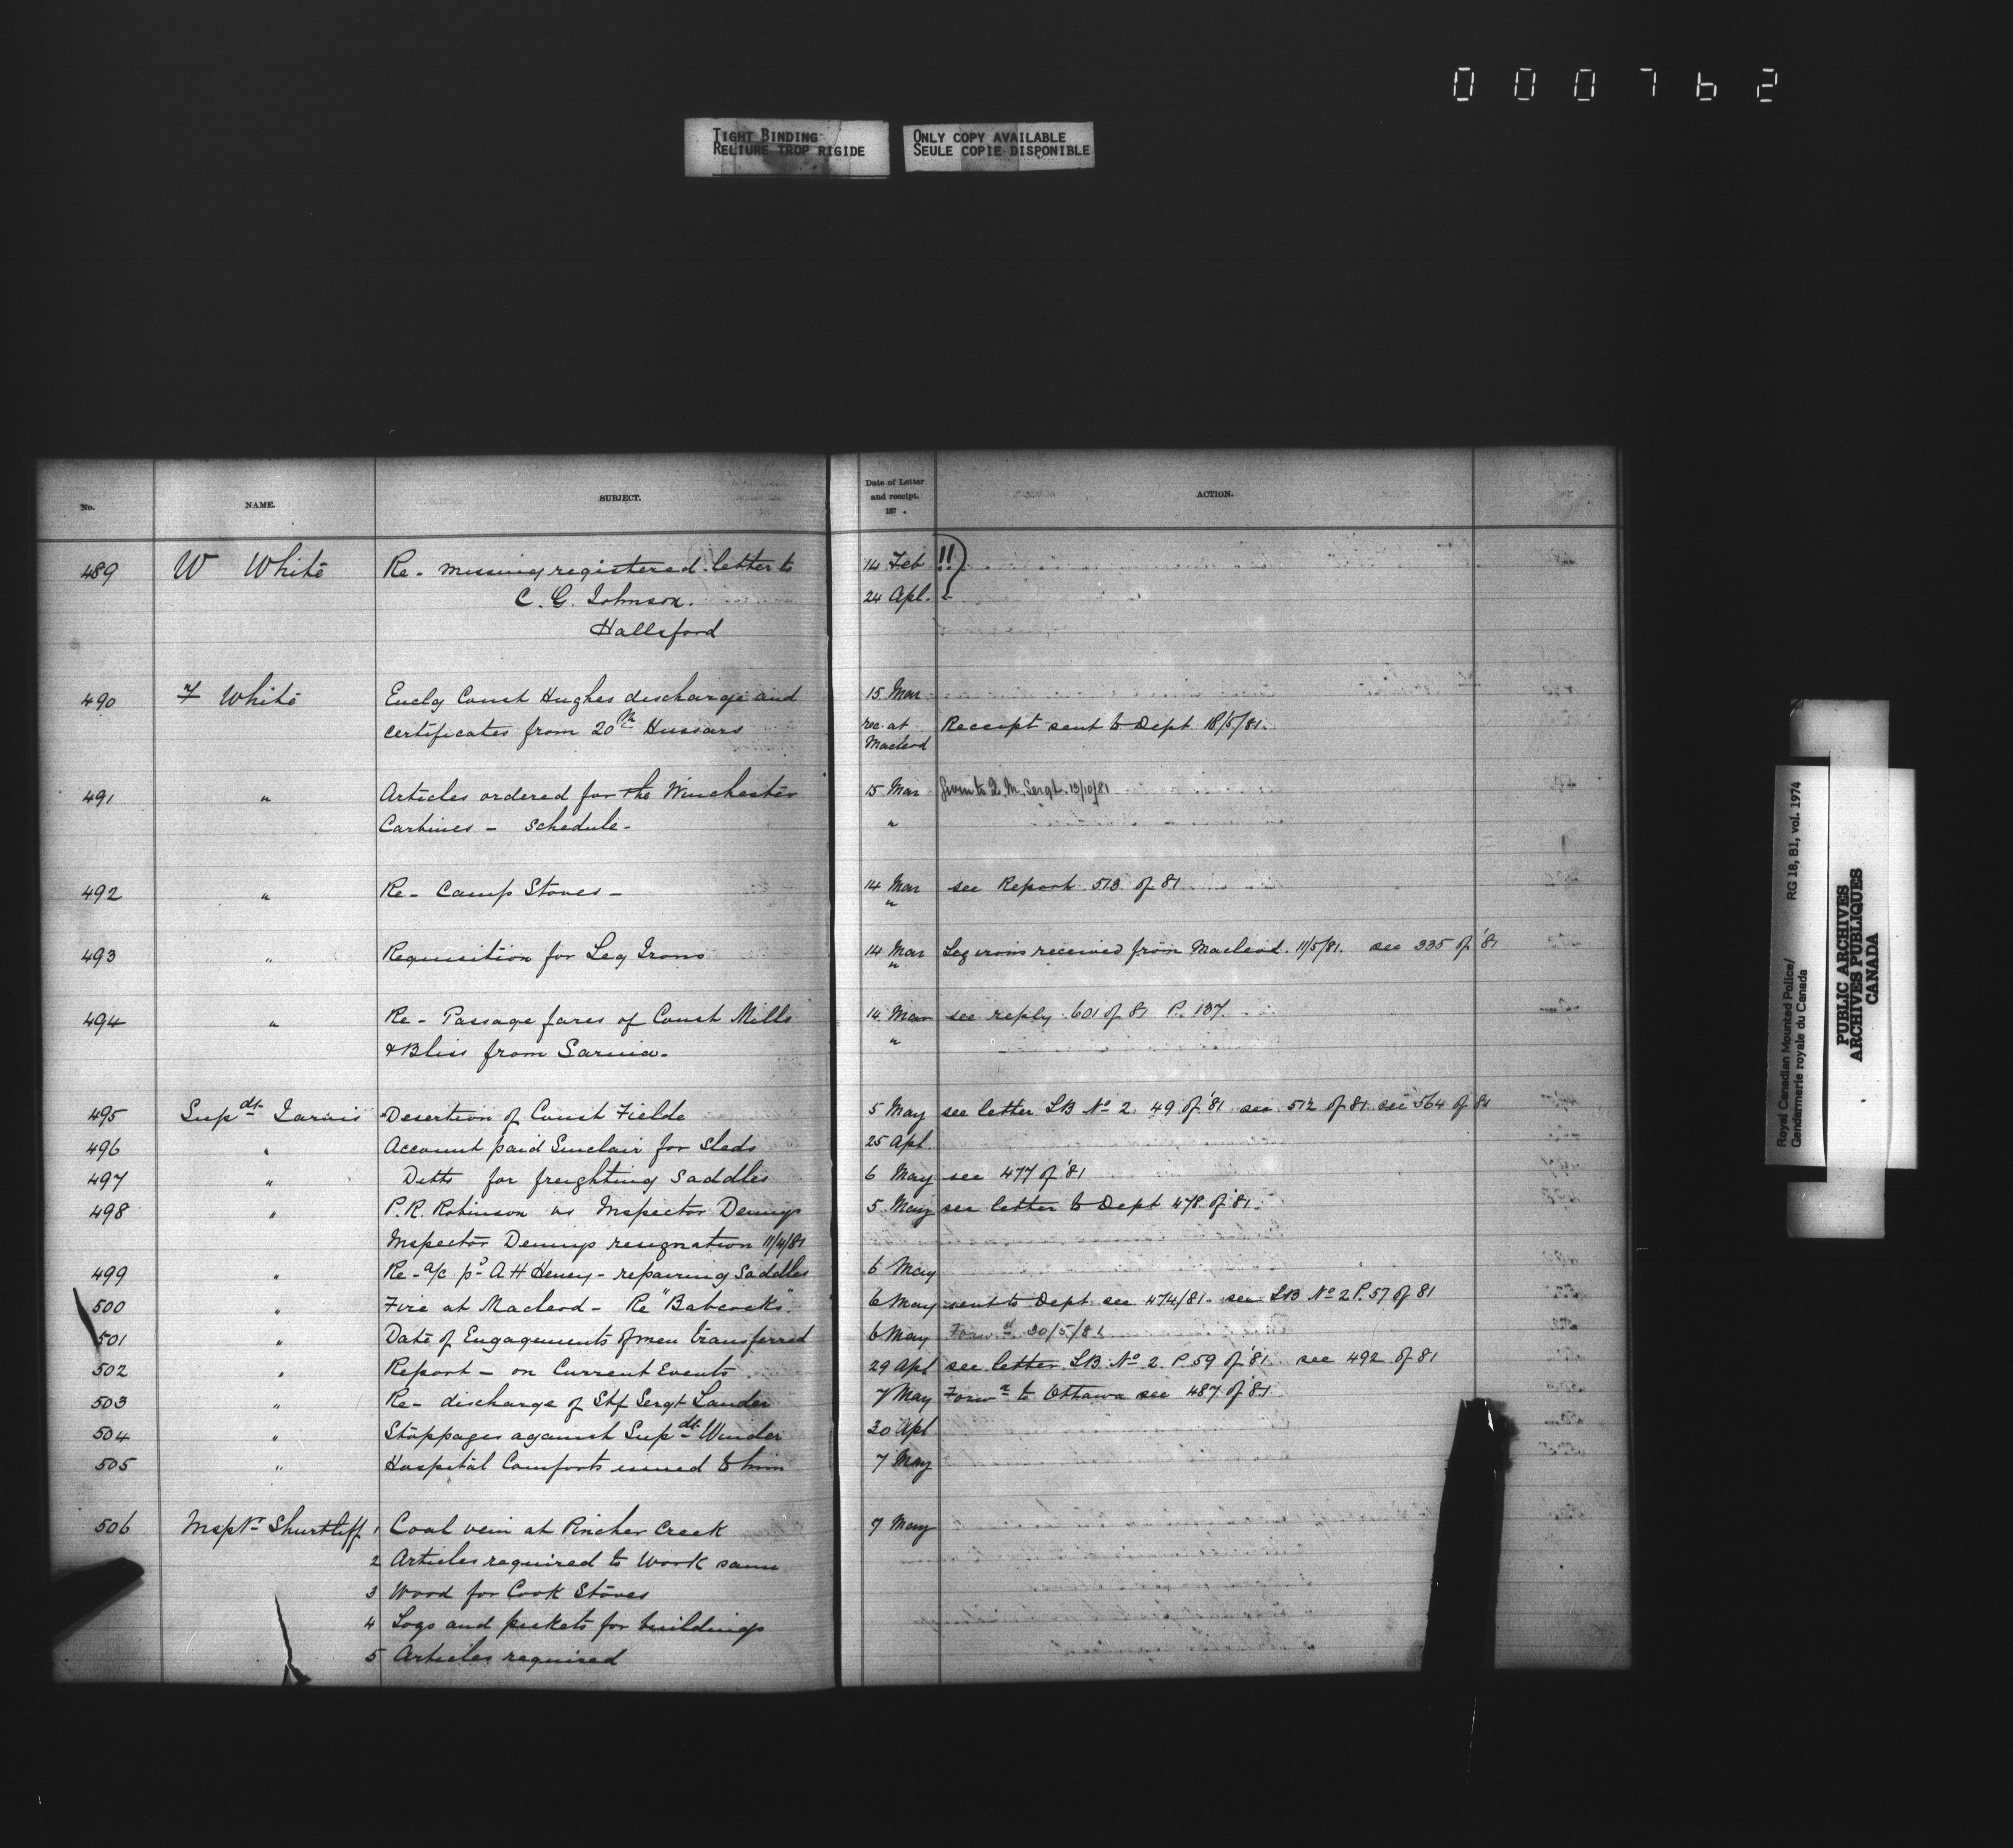 000762
TIGHT BINDING
RELIURE TROP RIGIDE
ONLY COPY AVAILABLE
SEULE COPIE DISPONIBLE
No. NAME. SUBJECT. Date of Letter and receipt. 187 . ACTION.
489 W White Re - missing registered letter to 14 Feb !!
C. G. Johnson. 24 Apl.
Hallsford
490 F White Enclg Const Hughes discharge and 15 Mar
certificates from 20th Hussars rec. at Receipt sent to Dept 18/5/81.
Macleod
491 " Articles ordered for the Winchester 15 Mar Given to Q. M. Sergt. 13/10/81
Carbines - Schedule - "
492 " Re - Camp Stoves - 14 Mar see Report 513 of 81
"
493 " Requisition for Leg Irons 14 Mar Leg irons received from Macleod. 11/5/81. see 335 of '81
"
494 " Re - Passage fares of Const Mills 14 Mar see reply 601 of 81 P. 137
& Bliss from Sarnia. "
495 Supdt Jarvis Desertion of Const Fielde 5 May see letter LB No 2. 49 of '81 see 512 of 81 see 564 of 81
496 " Account paid Sinclair for Sleds 25 Apl.
497 " Ditto for freighting Saddles 6 May see 477 of '81
498 " P. R. Robinson vs Inspector Dennys 5 May see letter to Dept 478 of '81.
Inspector Dennys resignation 11/4/81
499 " Re - a/c pd A H Heney - repairing Saddles 6 May
500 " Fire at Macleod - Re "Babcocks". 6 May sent to Dept see 474/81. see LB No 2 P. 57 of 81
501 " Date of Engagements of men transferred 6 May Forwd 30/5/81
502 " Report - on Current Events 29 Apl see letter LB. No 2. P. 59 of '81. see 492 of 81
503 " Re - discharge of Stf Sergt Lauder 7 May Forwd to Ottawa see 487 of '81
504 " Stoppages against Supdt Winder 30 Apl
505 " Hospital Comforts issued to him 7 May
506 Inspr Shurtliff 1 Coal vein at Pincher Creek 7 May
2 Articles required to Work same
3 Wood for Cook Stoves
4 Logs and pickets for buildings
5 Articles required
Royal Canadian Mounted Police/ RG 18, B1, vol. 1974
Gendarmerie royale du Canada
PUBLIC ARCHIVES
ARCHIVES PUBLIQUES
CANADA